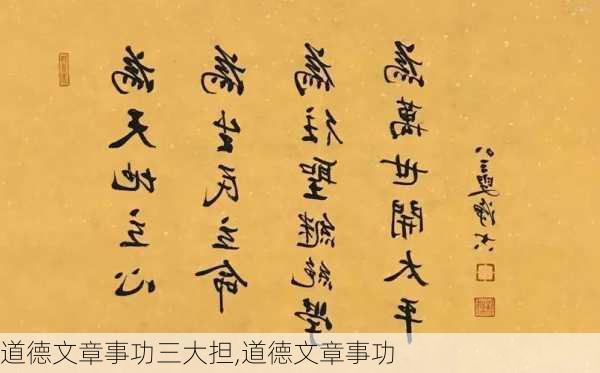 為天地立心
為生民立命
為往聖繼絕學
為萬世開太平
道德文章事功三大担,道德文章事功